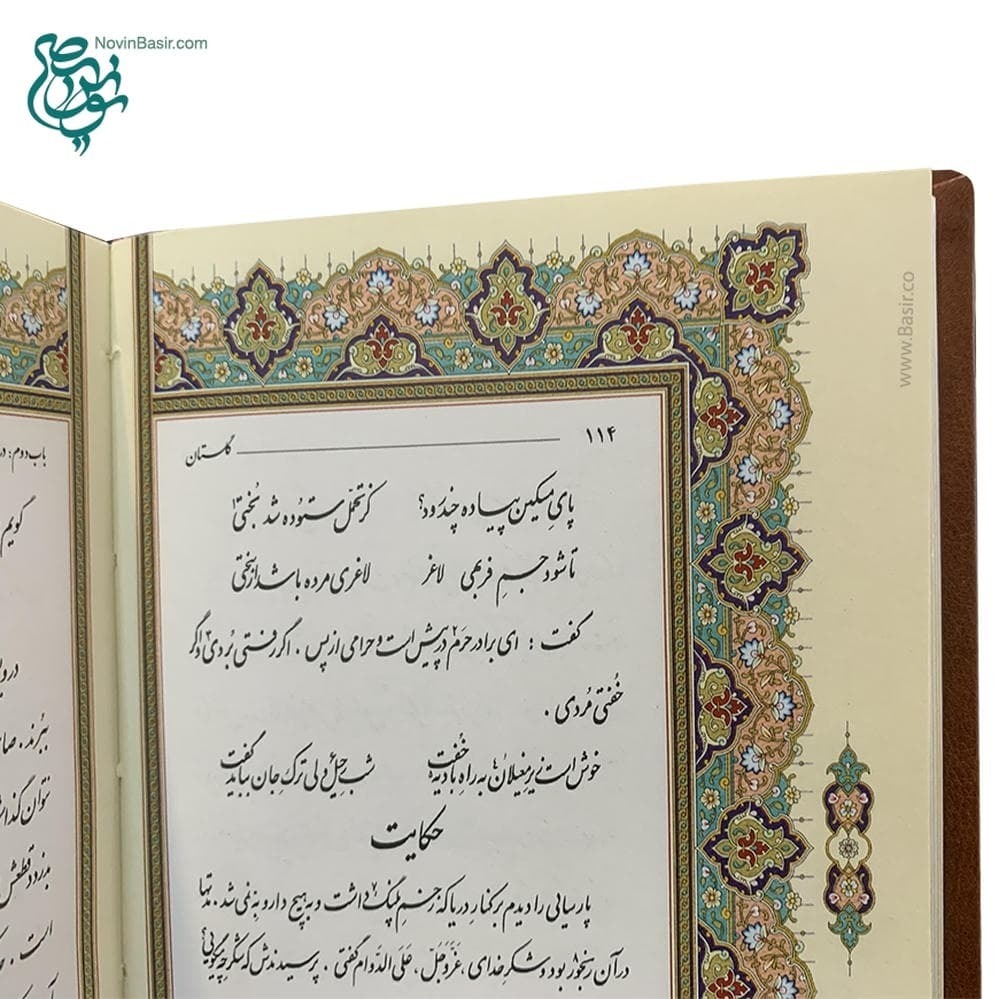 NovinBasir.com
نوین بصیر
www.Basir.co
۱۱۴ گلستان
پای مسکین پیاده چند رود؟ کز تحمّل ستوده شد بُختی۱
تا شود جسمِ فربهی لاغر لاغری مرده باشد از سختی
گفت: ای برادر حرم۲ در پیش است و حرامی از پس. اگر رفتی بُردی۳ و اگر
خُفتی مُردی.
خوش است زیرِ مغیلان۵ به راهِ بادیه خُفت شبِ رَحیل۶ ولی ترکِ جان بباید گفت
حکایت
پارسایی را دیدم بر کنارِ دریا که زخمِ پلنگ۷ داشت و به هیچ دارو به نمی‌شد. مدّتها
در آن رنجور۸ بود و شکرِ خدای، عَزَّوَجَلّ، عَلَی الدَّوام گفتی. پرسیدندش که شکرِ چه میگویی؟
باب دوم: در
گویم
ببرند. صا
نتوان گذا
بدزدد قطعش
است.